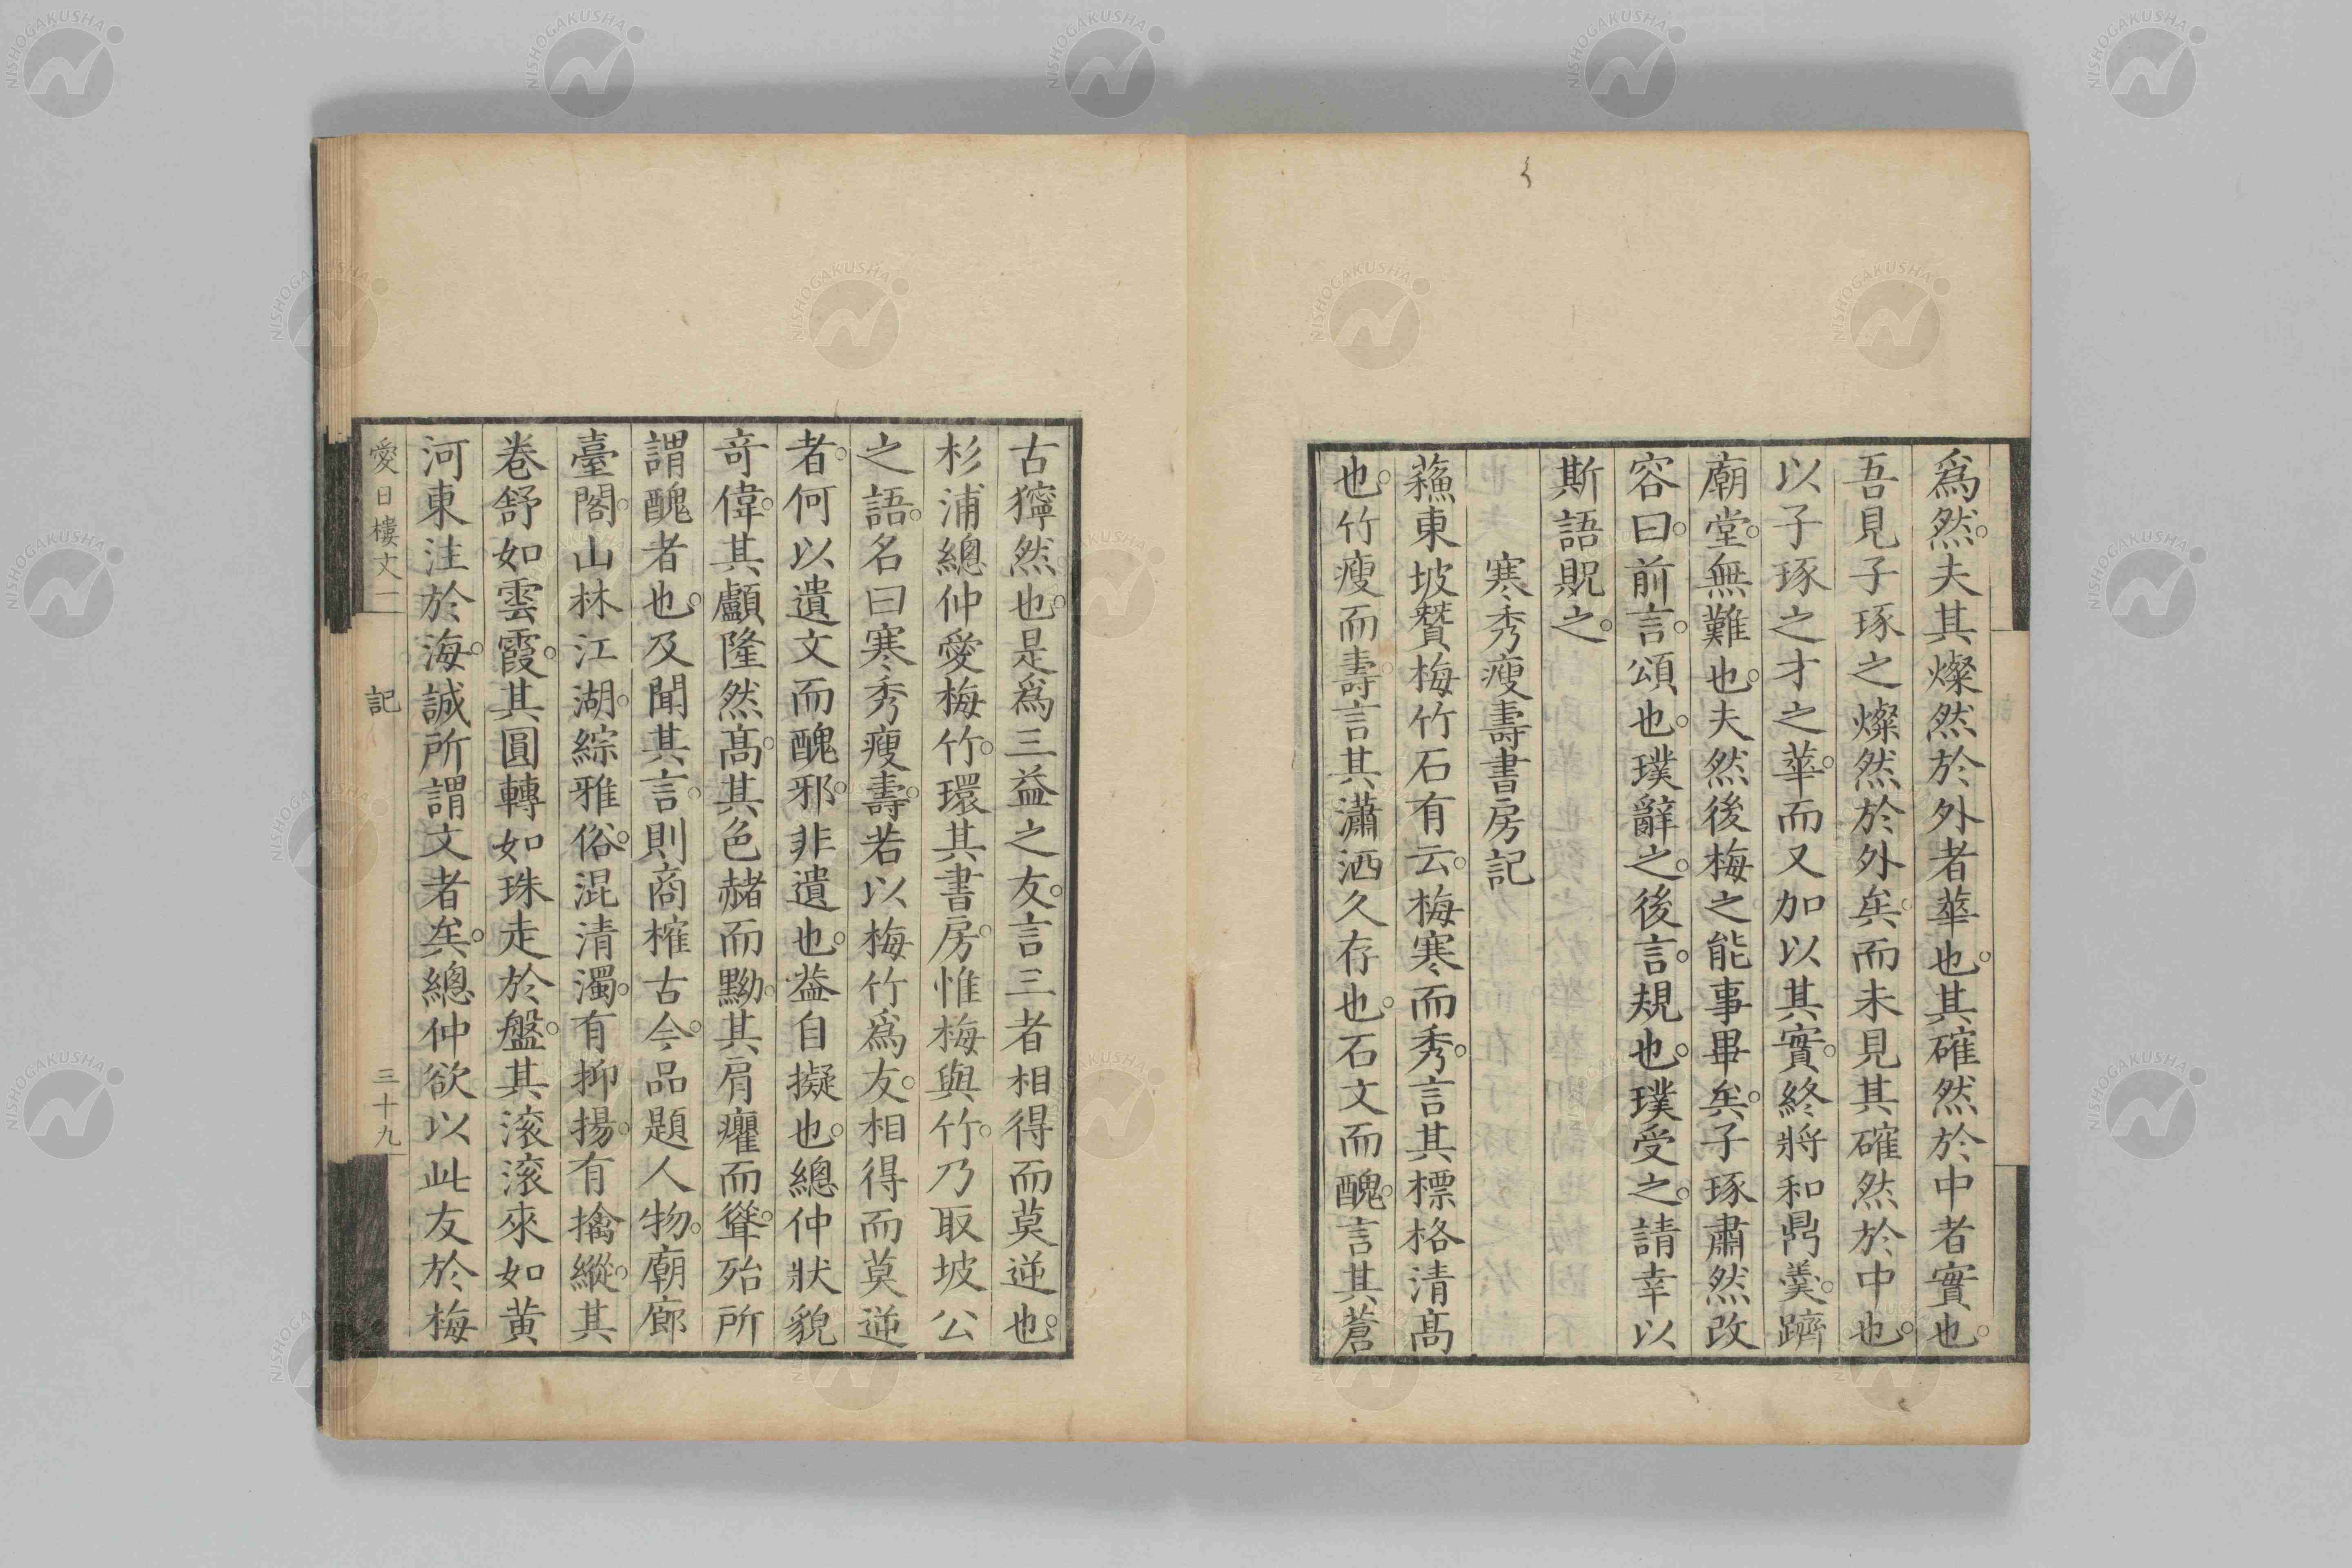 爲然。夫其燦然於外者華也。其確然於中者實也。
吾見子琢之燦然於外矣。而未見其確然於中也。
以子琢之才之華。而又加以其實。終將和鼎羹。躋
廟堂。無難也。夫然後梅之能事畢矣。子琢肅然改
容曰。前言。頌也。璞辭之。後言。規也。璞受之。請幸以
斯語貺之。
寒秀瘦壽書房記
蘓東坡贊梅竹石有云。梅寒而秀。言其標格清髙
也。竹瘦而壽。言其瀟洒久存也。石文而醜。言其蒼
古獰然也。是爲三益之友。言三者相得而莫逆也。
杉浦總仲愛梅竹。環其書房。惟梅與竹。乃取坡公
之語。名曰寒秀瘦壽。若以梅竹爲友。相得而莫逆
者。何以遺文而醜邪。非遺也。葢自擬也。總仲狀貌
奇偉。其顱隆然髙。其色赭而黝。其肩癯而聳。殆所
謂醜者也。及聞其言。則商榷古今。品題人物。廟廊
臺閣。山林江湖。綜雅俗。混清濁。有抑揚。有擒縱。其
巻舒如雲霞。其圓轉如珠走於盤。其滚滚來如黄
河東注於海。誠所謂文者矣。總仲欲以此友於梅
愛日樓文二 記 三十九
NISHOGAKUSHA